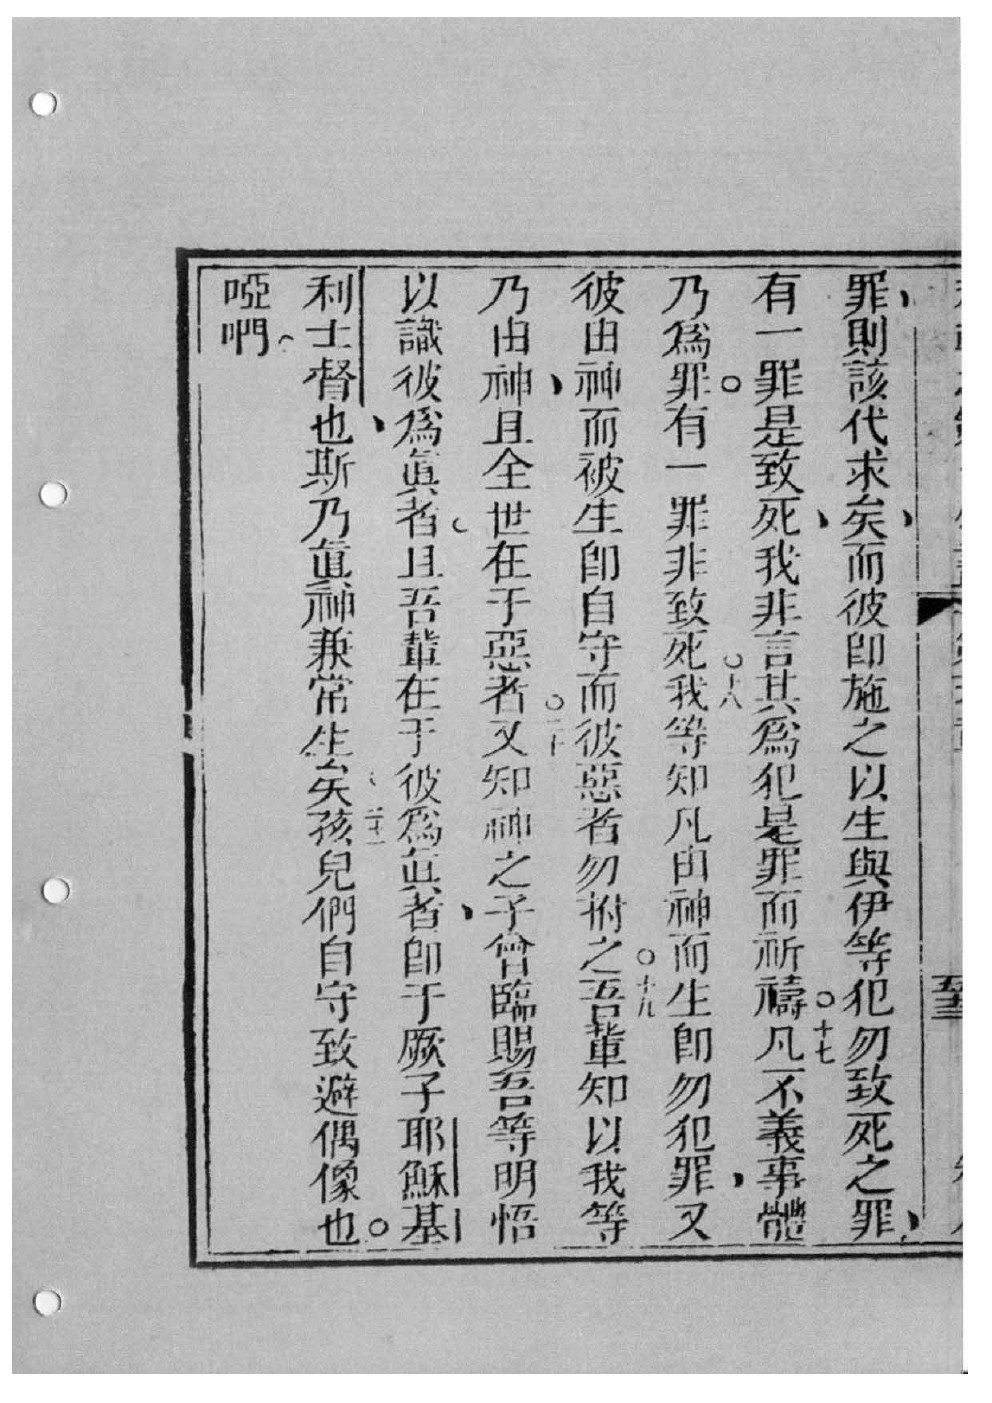 罪則該代求矣而彼卽施之以生與伊等犯勿致死之罪
有一罪是致死我非言其爲犯是罪而祈禱○十七凡不義事體
乃爲罪○有一罪非致死○十八我等知凡由神而生卽勿犯罪又
彼由神而被生卽自守而彼惡者勿拊之○十九吾輩知以我等
乃由神且全世在于惡者○二十又知神之子曾臨賜吾等明悟
以識彼爲眞者且吾輩在于彼爲眞者卽于厥子耶穌基
利士督也斯乃眞神兼常生矣二十一孩兒們自守致避偶像也○
啞啊